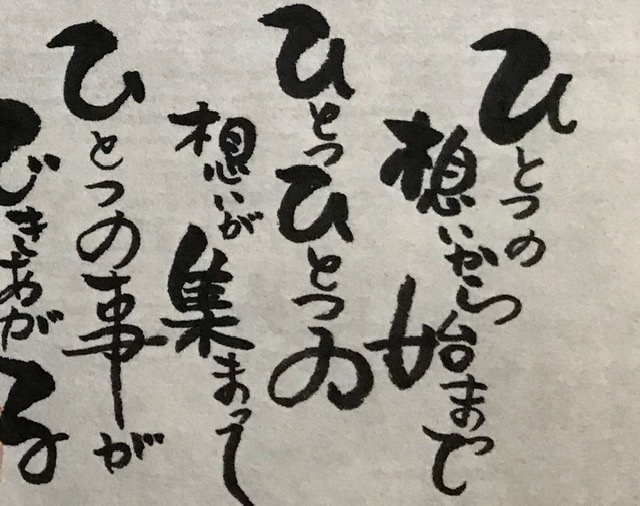 ひとつの
想いから始まって
ひとつひとつの
想いが集まって
ひとつの事が
できあがる